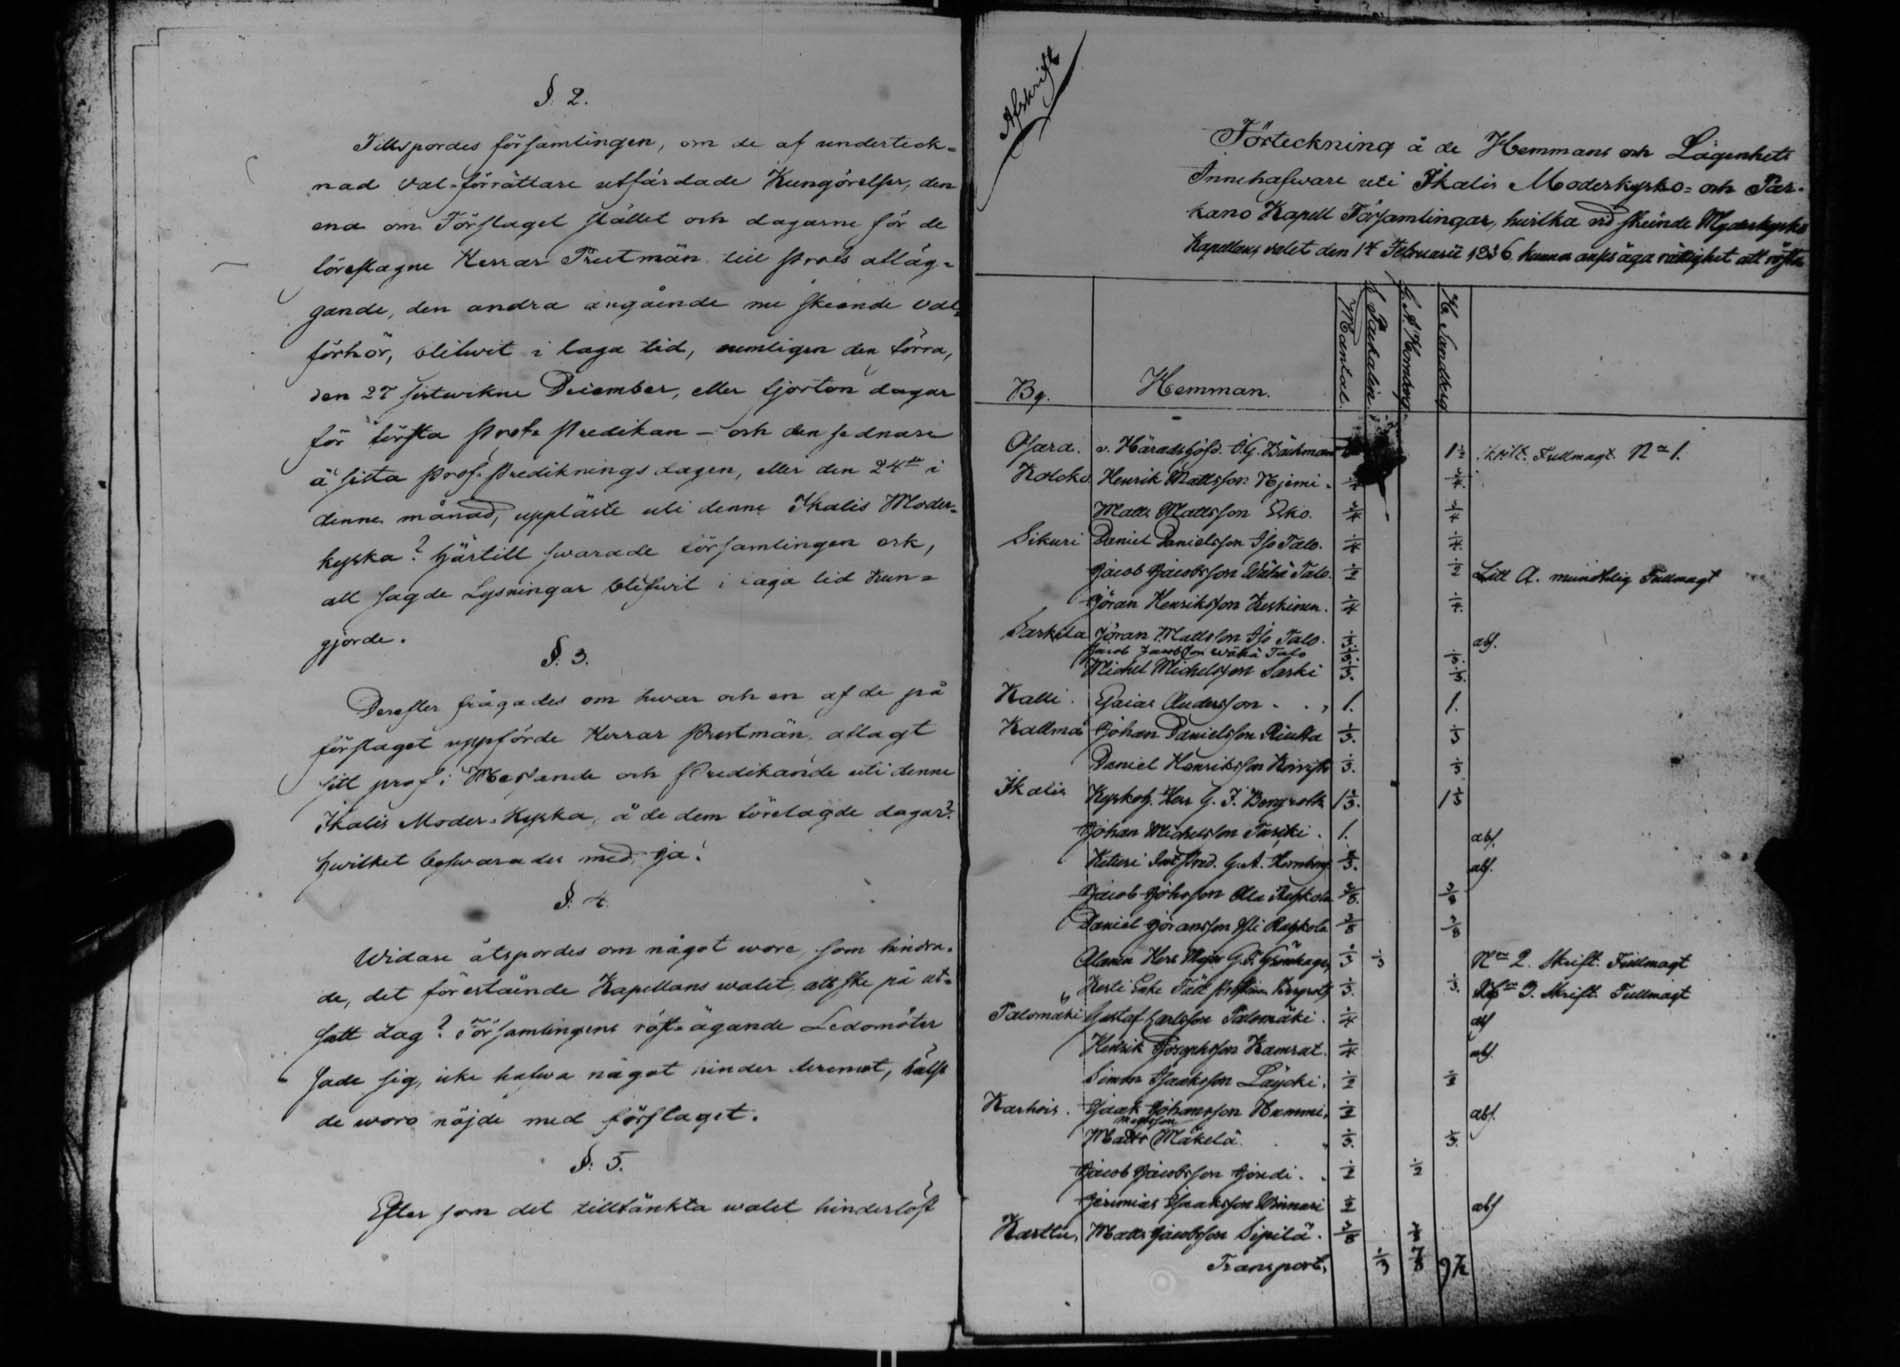 §. 2.
Tillspordes församlingen, om de af underteck-
nad Val-förrättare utfärdade Kungörelser, den
ena om Förslaget stället och dagarne för de
föreslagne Herrar Prestmän till profs afläg-
gande, den andra angående nu skeende Val-
förhör, blifwit i laga tid, nemligen den förra,
den 27 sistwikne December, eller fjorton dagar
för första Profs Predikan - och den sednare
å sista Prof-Predikningsdagen, eller den 24de i
denne månad, uppläste uti denne Ikalis Moder-
kyrka? Härtill swarade församlingen ock,
att sagde Lysningar blifwit i laga tid kun-
gjorde.
§. 3.
Derefter frågades om hwar och en af de på
förslaget uppförde Herrar Prestmän aflagt
sitt prof i Messande och Predikande uti denne
Ikalis Moder-Kyrka, å de dem förelagde dagar?
Hwilket beswarades med ja.
§. 4.
Widare åtspordes om något wore, som hindra-
de, det förestående Kapellans walet att ske på ut-
satt dag? Församlingens röst-ägande Ledamöter
sade sig, icke hafwa något hinder deremot,
de woro nöjde med förslaget.
§. 5.
Eftersom det tilltänkta walet hinderlöst
Afskrift
Förteckning å de Hemmans och Lägenhets
Innehafware uti Ikalis Moderkyrko- och Par-
kano Kapell Församlingar, hwilka vid skeende Moderkyrko
Kapellans valet den 14 Februarii 1836 kunna anses äga rättighet att rösta
By. Hemman. Mantal. G. A. Hornborg H. Sandberg
Osara. v. Häradshöfd. Bäckman 1 1/2 Skrift. Fullmagt No 1.
Kolcko Henrik Mattsson Hjemi 1/4
Matts Mattsson Esko. 3/4 3/4
Sikuri Daniel Danielsson Iso Talo. 1/4 1/4
Jacob Jacobsson Wähä Talo. 1/2 1/2 Litt A. muntelig Fullmagt
Göran Henriksson Keskinen. 1/4 1/4
Sarkila Göran Mattsson Iso Talo. 1/3 abs.
Jacob Jacobsson Wähä Talo 1/3 1/3
Michel Michelsson Sarki 1/3 1/3
Kalli. Esaias Andersson 1. 1.
Kallmaa Johan Danielsson Riutta 1/3 1/3
Daniel Henriksson Koivisto 1/3 1/3
Ikalis Kyrkoh. Herr G. I. Bergroth 1 1/3 1 1/3
Johan Michelsson Tusiki 1. abs.
Keturi G. A. Hornborg abs.
Jacob Johnsson Ala Riskola 3/8 3/8
Daniel Göransson Yli Riskola 3/8 3/8
Alanen Herr Major G. F. Grönhagen 1/3 1/3 No 2. Skrift. Fullmagt
Kerte Enke Fält 1/3 1/3 No 3. Skrift. Fullmagt
Palomäki Gustaf Carlsson Palomäki 1/4 abs
Henrik Josephsson Kamrat 1/4 abs.
Simon Isaksson Läycki 1/2 1/2
Karhois. Isaak Johansson Hammi 1/2 abs.
Mattsson
Matts Mäkelä 1/3 1/3
Jacob Jacobsson Gordi 1/2 1/2
Jeremias Isaaksson Winnari 1/2 abs
Karttu, Matts Jacobsson Sipilä 3/8 3/8
Transport, 1/3 7/8